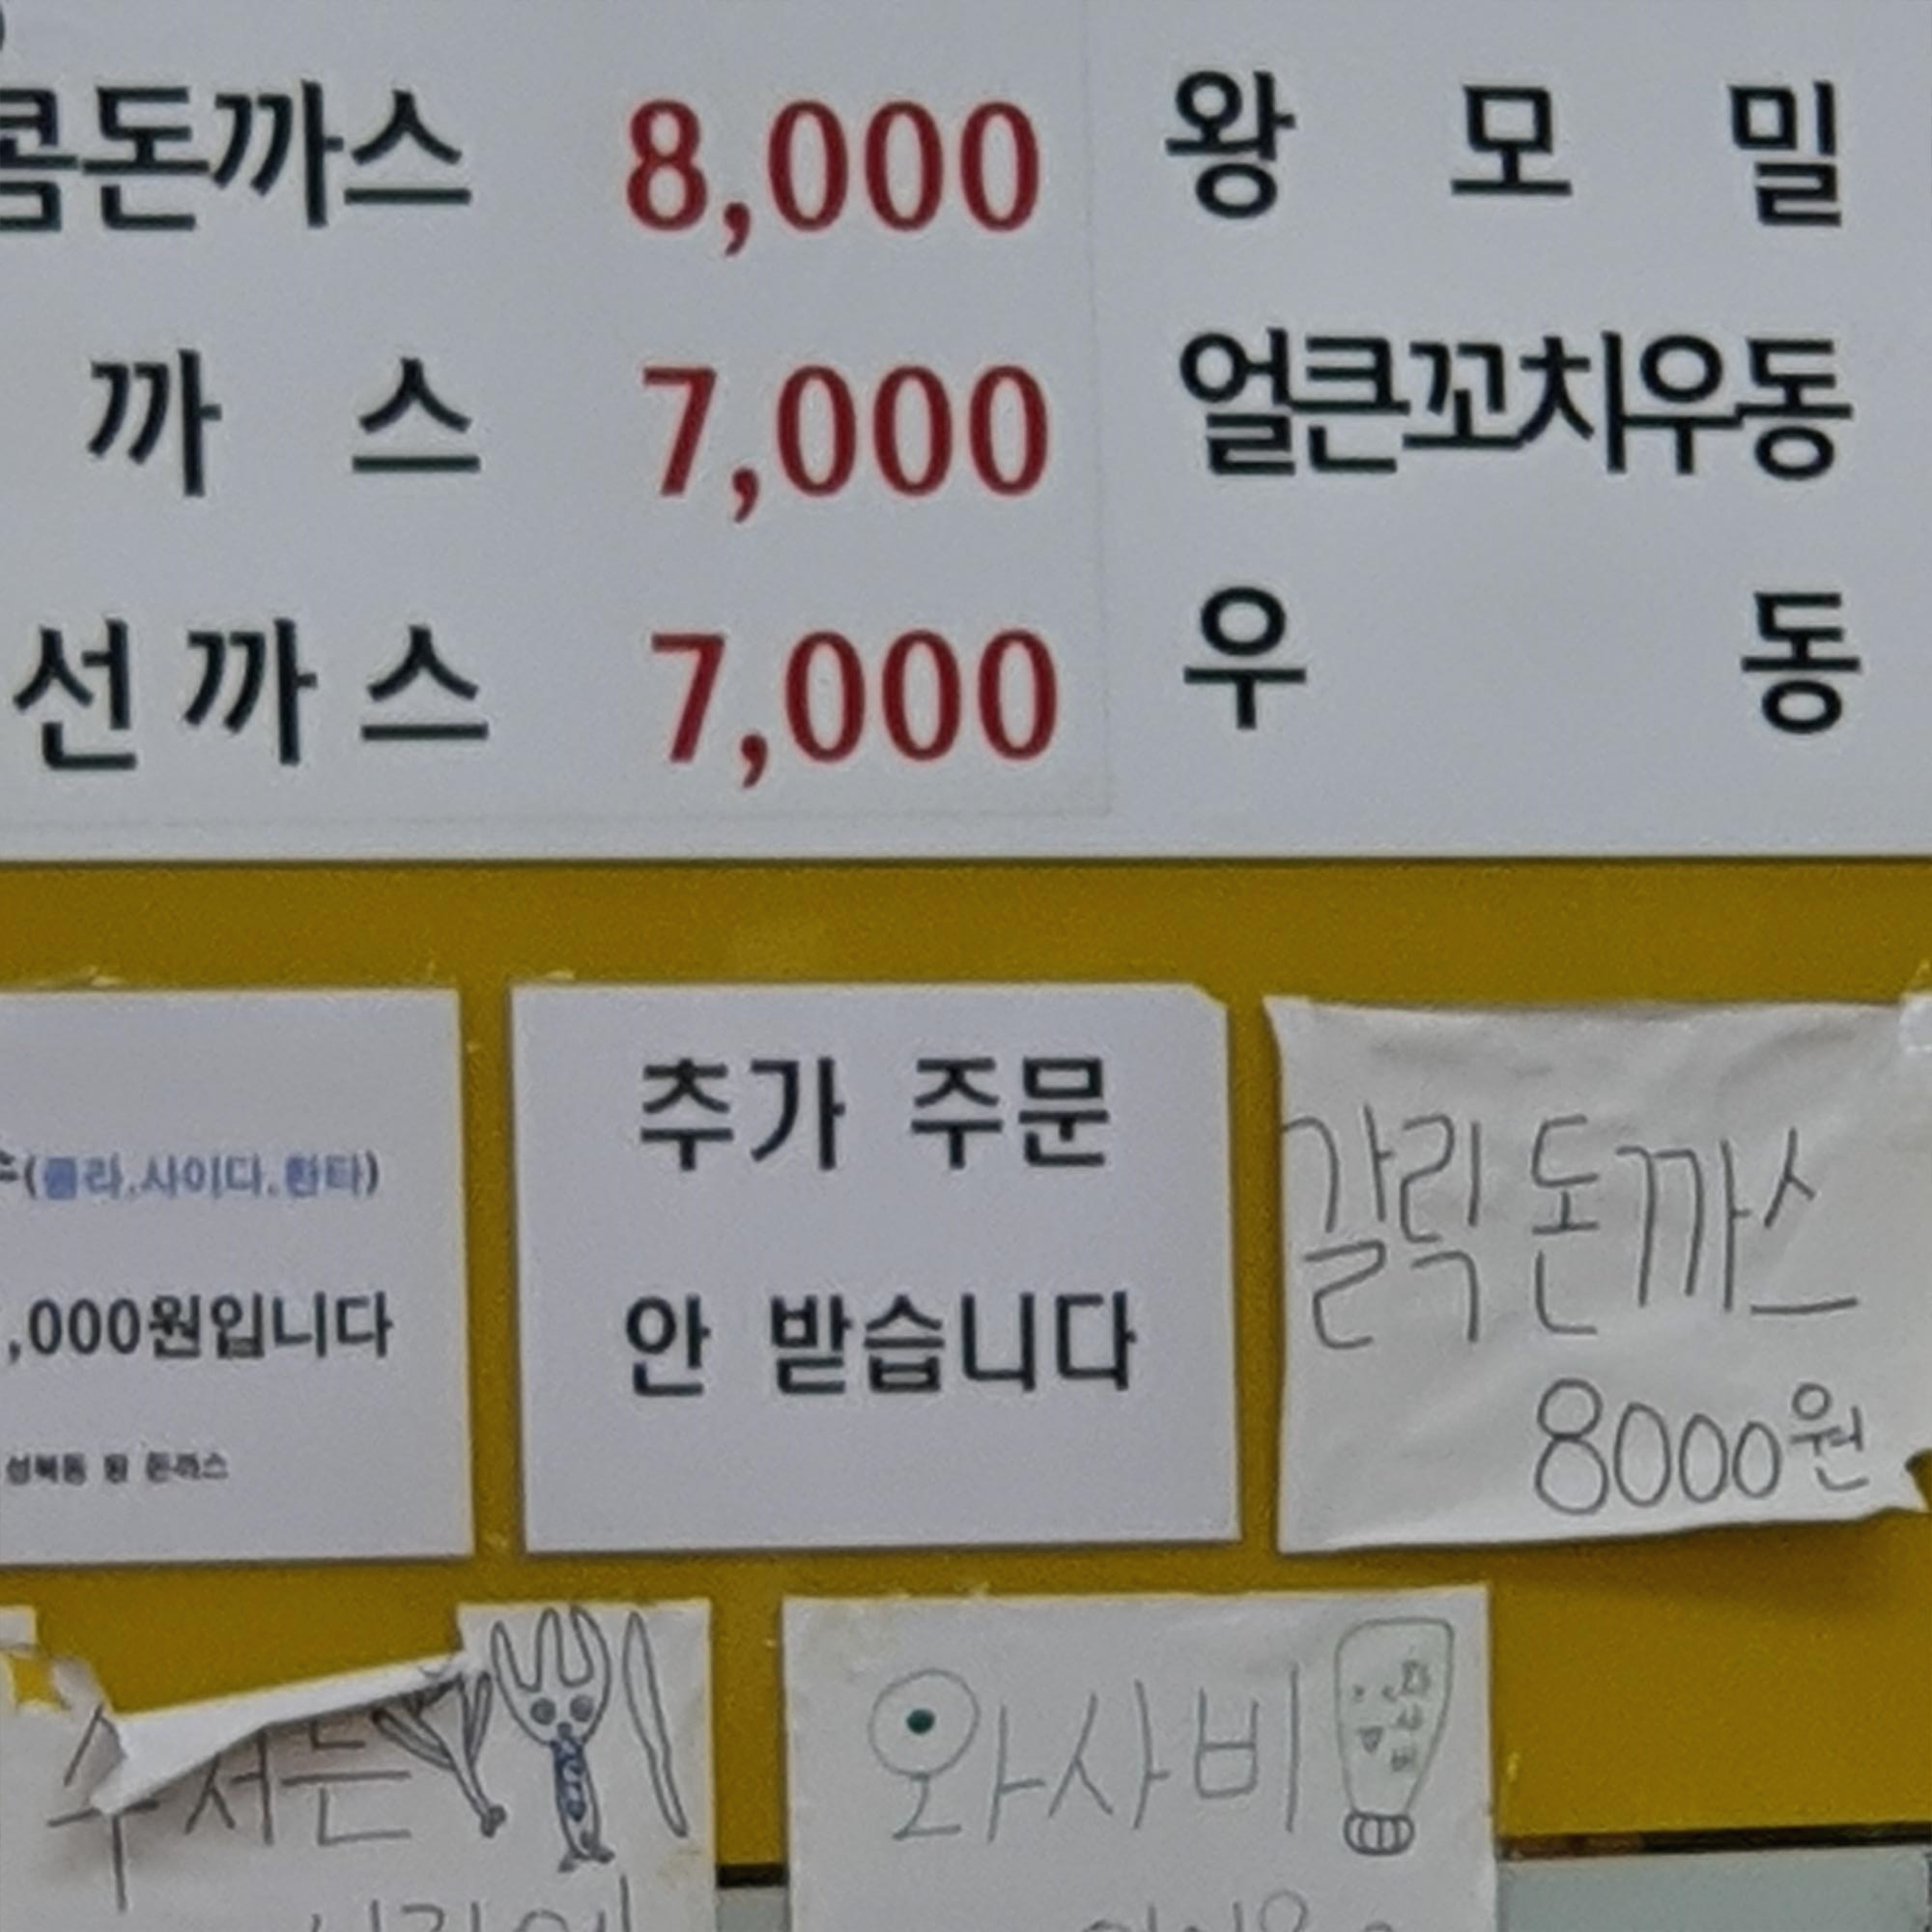 콤돈까스 8,000 왕 모 밀
까 스 7,000 얼큰꼬치우동
선 까 스 7,000 우 동
(콜라.사이다.환타)
,000원입니다
성북동 왕 돈까스
추가 주문
안 받습니다
갈릭돈까스
8000원
수저는
와사비
와사비